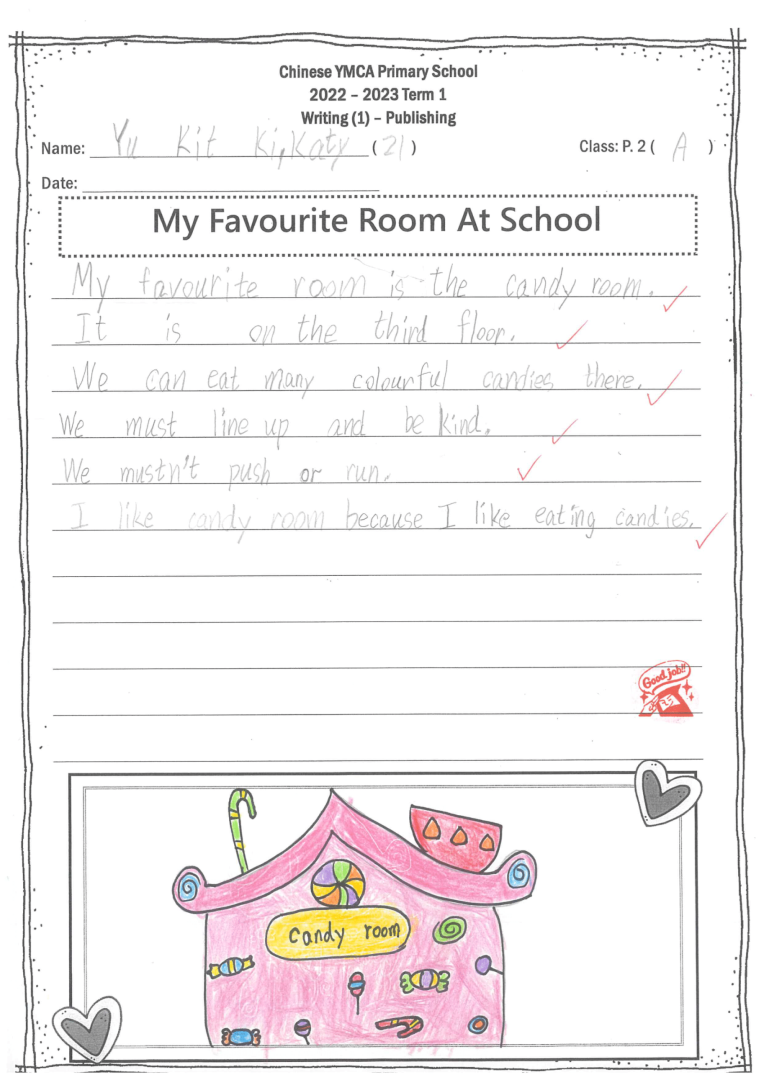 Chinese YMCA Primary School
2022 – 2023 Term 1
Writing (1) – Publishing
Name: Yu Kit Ki, Katy (21) Class: P. 2 ( A )
Date:
My Favourite Room At School
My favourite room is the candy room.
It is on the third floor.
We can eat many colourful candies there.
We must line up and be kind.
We mustn't push or run.
I like candy room because I like eating candies.
Good job!!
Candy room